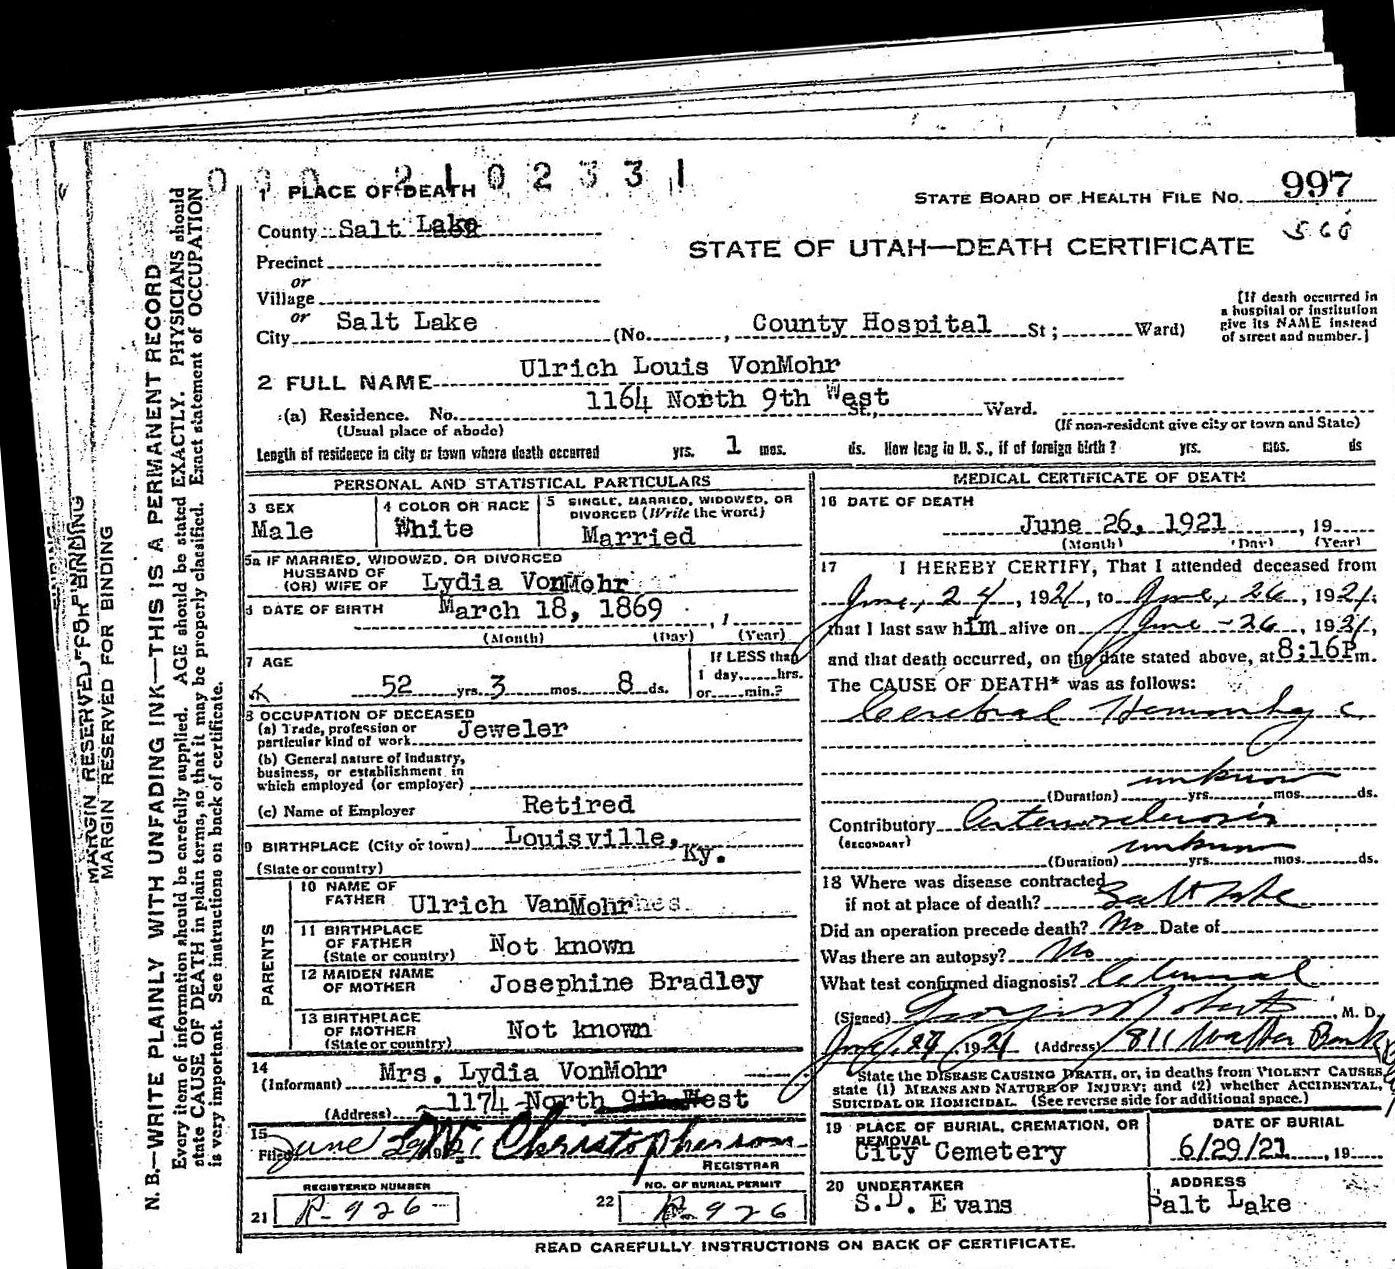 MARGIN RESERVED FOR BINDING
MARGIN RESERVED FOR BINDING
N. B.—WRITE PLAINLY WITH UNFADING INK—THIS IS A PERMANENT RECORD
Every item of information should be carefully supplied. AGE should be stated EXACTLY. PHYSICIANS should
state CAUSE OF DEATH in plain terms, so that it may be properly classified. Exact statement of OCCUPATION
is very important. See instructions on back of certificate.
210233 1
1 PLACE OF DEATH
STATE BOARD OF HEALTH FILE NO. 997
County Salt Lake
560
STATE OF UTAH—DEATH CERTIFICATE
Precinct
or
Village
or
City Salt Lake (No. , County Hospital St ; Ward)
[If death occurred in
a hospital or institution
give its NAME instead
of street and number.]
2 FULL NAME Ulrich Louis VonMohr
(a) Residence. No. 1164 North 9th West St., Ward.
(Usual place of abode)
(If non-resident give city or town and State)
Length of residence in city or town where death occurred yrs. 1 mos. ds. How long in U. S., if of foreign birth? yrs. mos. ds
PERSONAL AND STATISTICAL PARTICULARS
3 SEX
Male
4 COLOR OR RACE
White
5 SINGLE, MARRIED, WIDOWED, OR
DIVORCED (Write the word)
Married
5a IF MARRIED, WIDOWED, OR DIVORCED
HUSBAND OF
(OR) WIFE OF Lydia VonMohr
6 DATE OF BIRTH March 18, 1869 , 1
(Month) (Day) (Year)
7 AGE
52 yrs. 3 mos. 8 ds.
If LESS than
1 day, hrs.
or min.?
8 OCCUPATION OF DECEASED
(a) Trade, profession or
particular kind of work Jeweler
(b) General nature of Industry,
business, or establishment in
which employed (or employer)
(c) Name of Employer Retired
9 BIRTHPLACE (City or town) Louisville, Ky.
(State or country)
PARENTS
10 NAME OF
FATHER Ulrich VanMohr
11 BIRTHPLACE
OF FATHER
(State or country) Not known
12 MAIDEN NAME
OF MOTHER Josephine Bradley
13 BIRTHPLACE
OF MOTHER
(State or country) Not known
14
(Informant) Mrs. Lydia VonMohr
(Address) 1174 North 9th West
15
Filed June Christopherson
REGISTRAR
REGISTERED NUMBER
21 R-926
NO. OF BURIAL PERMIT
22 R-926
MEDICAL CERTIFICATE OF DEATH
16 DATE OF DEATH
June 26, 1921 , 19
(Month) (Day) (Year)
17 I HEREBY CERTIFY, That I attended deceased from
June, 24, 1921, to June, 26, 1921,
that I last saw him alive on June - 26, 1921,
and that death occurred, on the date stated above, at 8:16P m.
The CAUSE OF DEATH* was as follows:
Cerebral Hemorrhage
unknown
(Duration) yrs. mos. ds.
Contributory Arteriosclerosis
(SECONDARY)
unknown
(Duration) yrs. mos. ds.
18 Where was disease contracted
if not at place of death? Salt Lake
Did an operation precede death? No Date of
Was there an autopsy? No
What test confirmed diagnosis?
(Signed) Roberts, M. D.
June, 27, 1921 (Address) 811 Walker Bank
*State the DISEASE CAUSING DEATH, or, in deaths from VIOLENT CAUSES,
state (1) MEANS AND NATURE OF INJURY; and (2) whether ACCIDENTAL,
SUICIDAL OR HOMICIDAL. (See reverse side for additional space.)
19 PLACE OF BURIAL, CREMATION, OR
REMOVAL
City Cemetery
DATE OF BURIAL
6/29/21, 19
20 UNDERTAKER
S.D. Evans
ADDRESS
Salt Lake
READ CAREFULLY INSTRUCTIONS ON BACK OF CERTIFICATE.